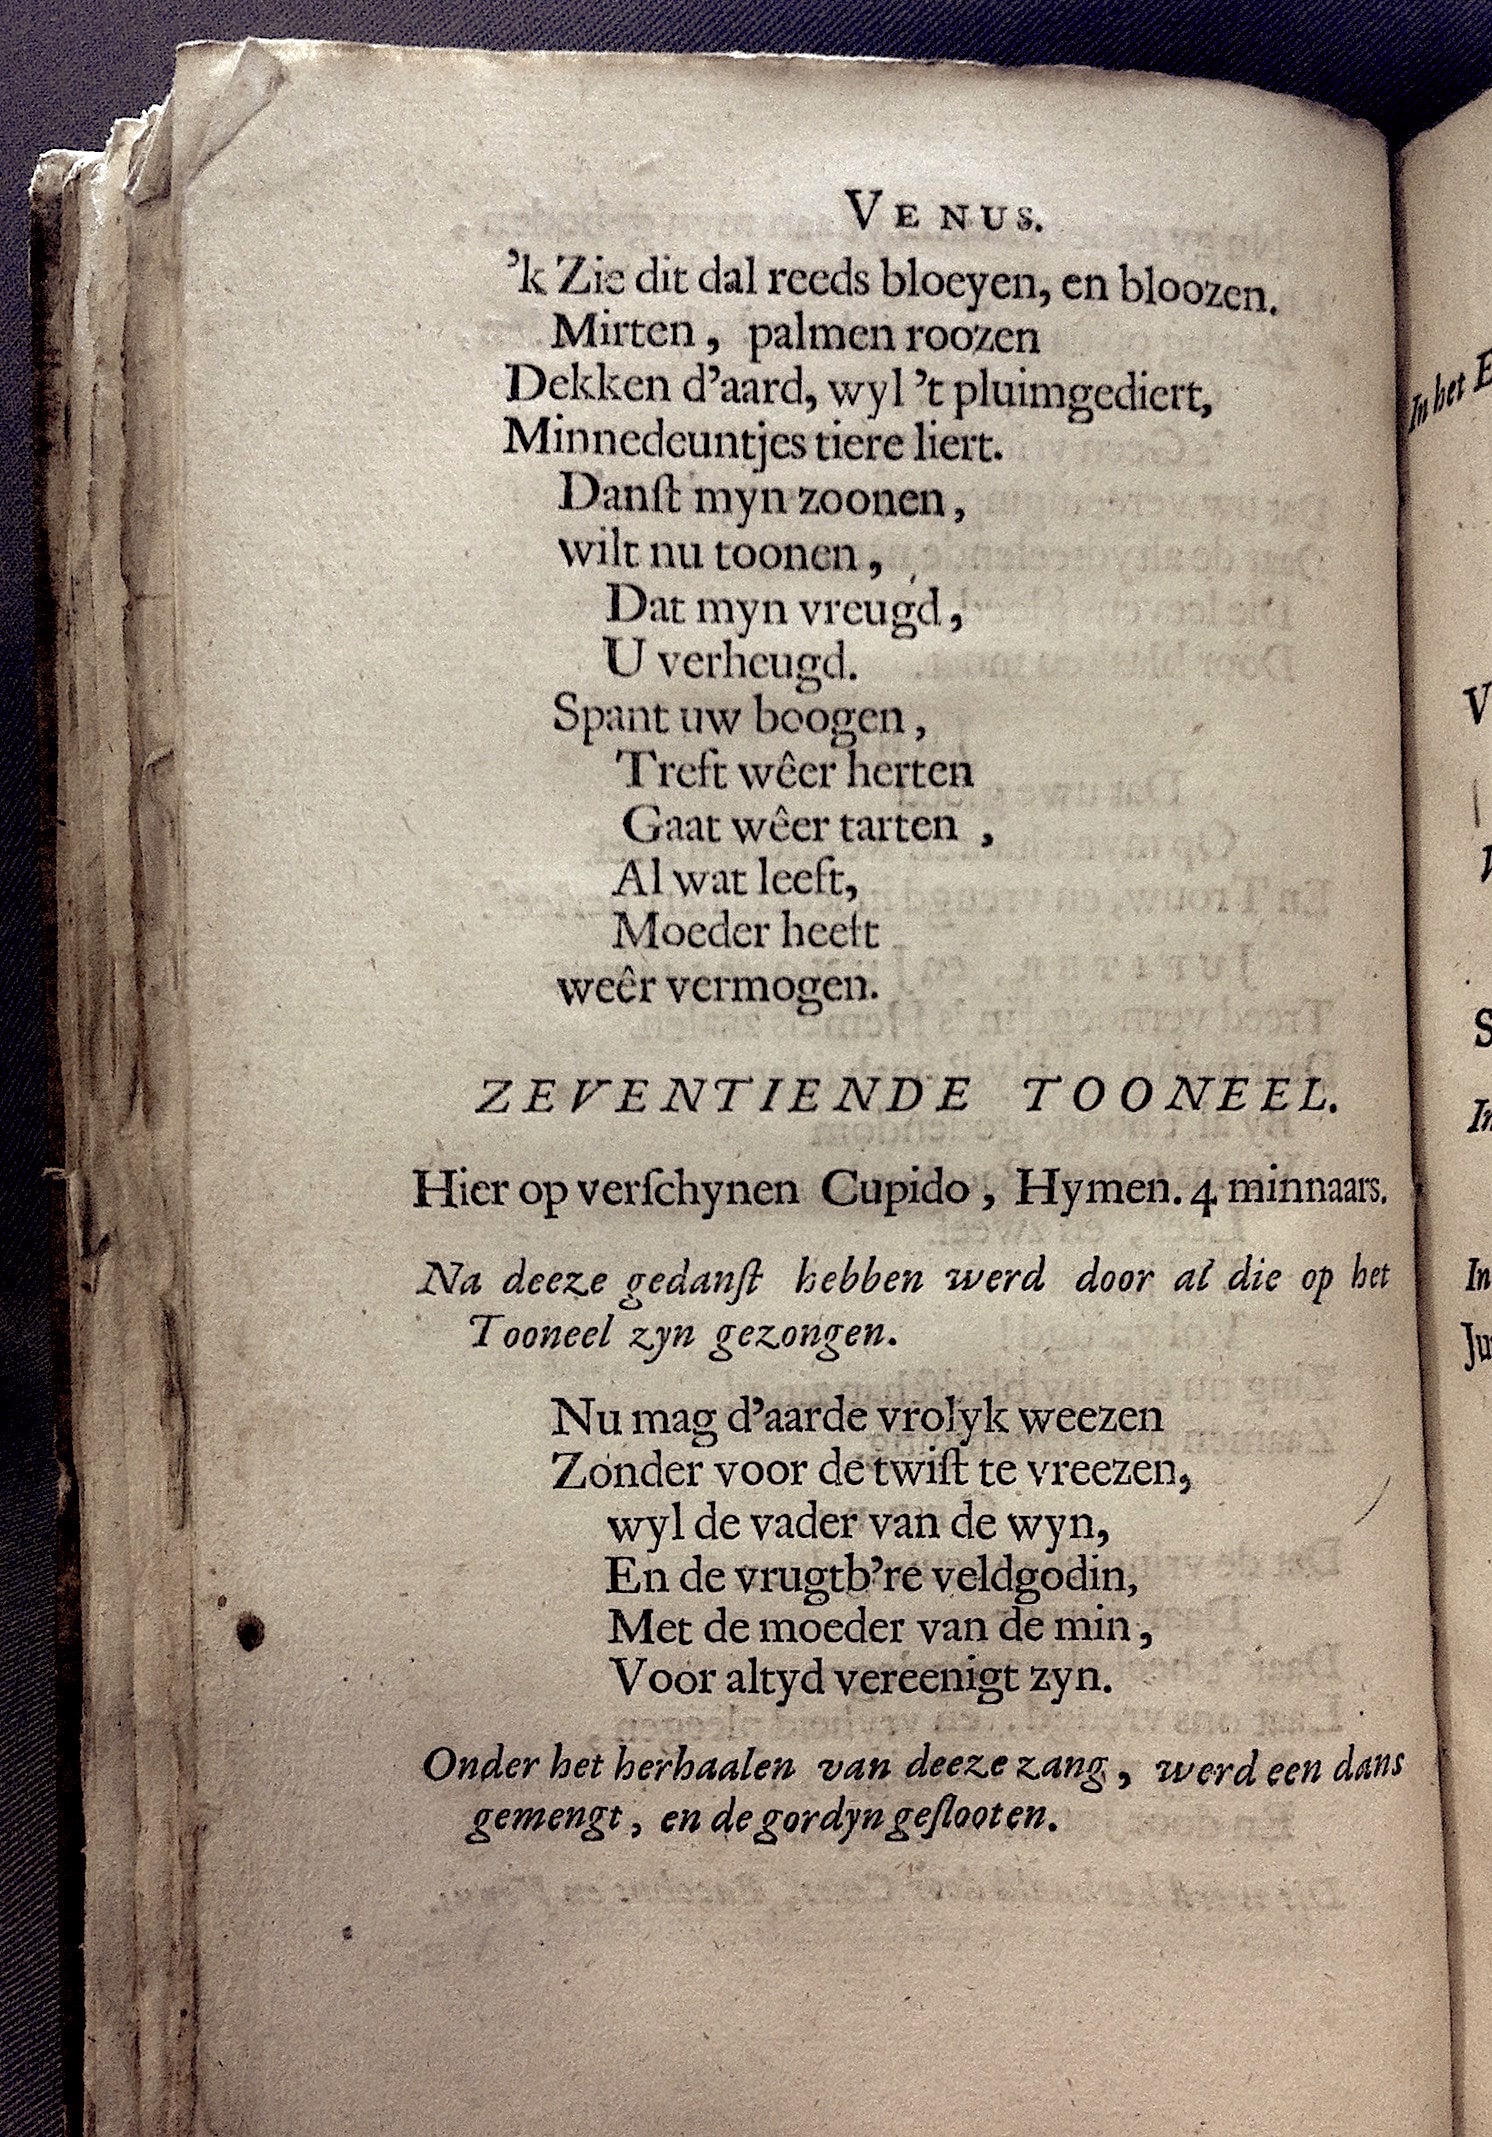 VENUS.
’k Zie dit dal reeds bloeyen, en bloozen.
Mirten, palmen roozen
Dekken d’aard, wyl ’t pluimgediert,
Minnedeuntjes tiere liert.
Danſt myn zoonen,
wilt nu toonen,
Dat myn vreugd,
U verheugd.
Spant uw boogen,
Treft wêer herten
Gaat wêer tarten ,
Al wat leeft,
Moeder heeft
weêr vermogen.
ZEVENTIENDE TOONEEL.
Hier op verſchynen Cupido, Hymen. 4 minnaars.
Na deeze gedanſt hebben werd door al die op het
Tooneel zyn gezongen.
Nu mag d’aarde vrolyk weezen
Zonder voor de twiſt te vreezen,
wyl de vader van de wyn,
En de vrugtb’re veldgodin,
Met de moeder van de min,
Voor altyd vereenigt zyn.
Onder het herhaalen van deeze zang, werd een dans
gemengt, en de gordyn geſlooten.
In het
Ju